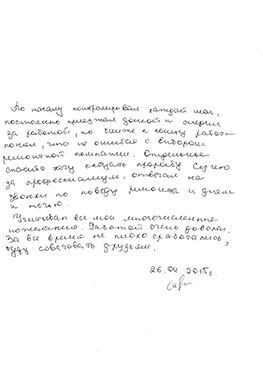 По началу контролировал каждый шаг,
постоянно приезжал домой и следил
за работой, но ближе к концу работ
понял, что не ошибся с выбором
ремонтной компании. Отдельное
спасибо хочу сказать прорабу
за профессионализм, отвечал на
звонки по поводу ремонта и днем
и ночью.
Учитывал все мои многочисленные
пожелания. Работой очень доволен.
За все время не плохо сработались,
буду советовать друзьям.
26.04.2015г.